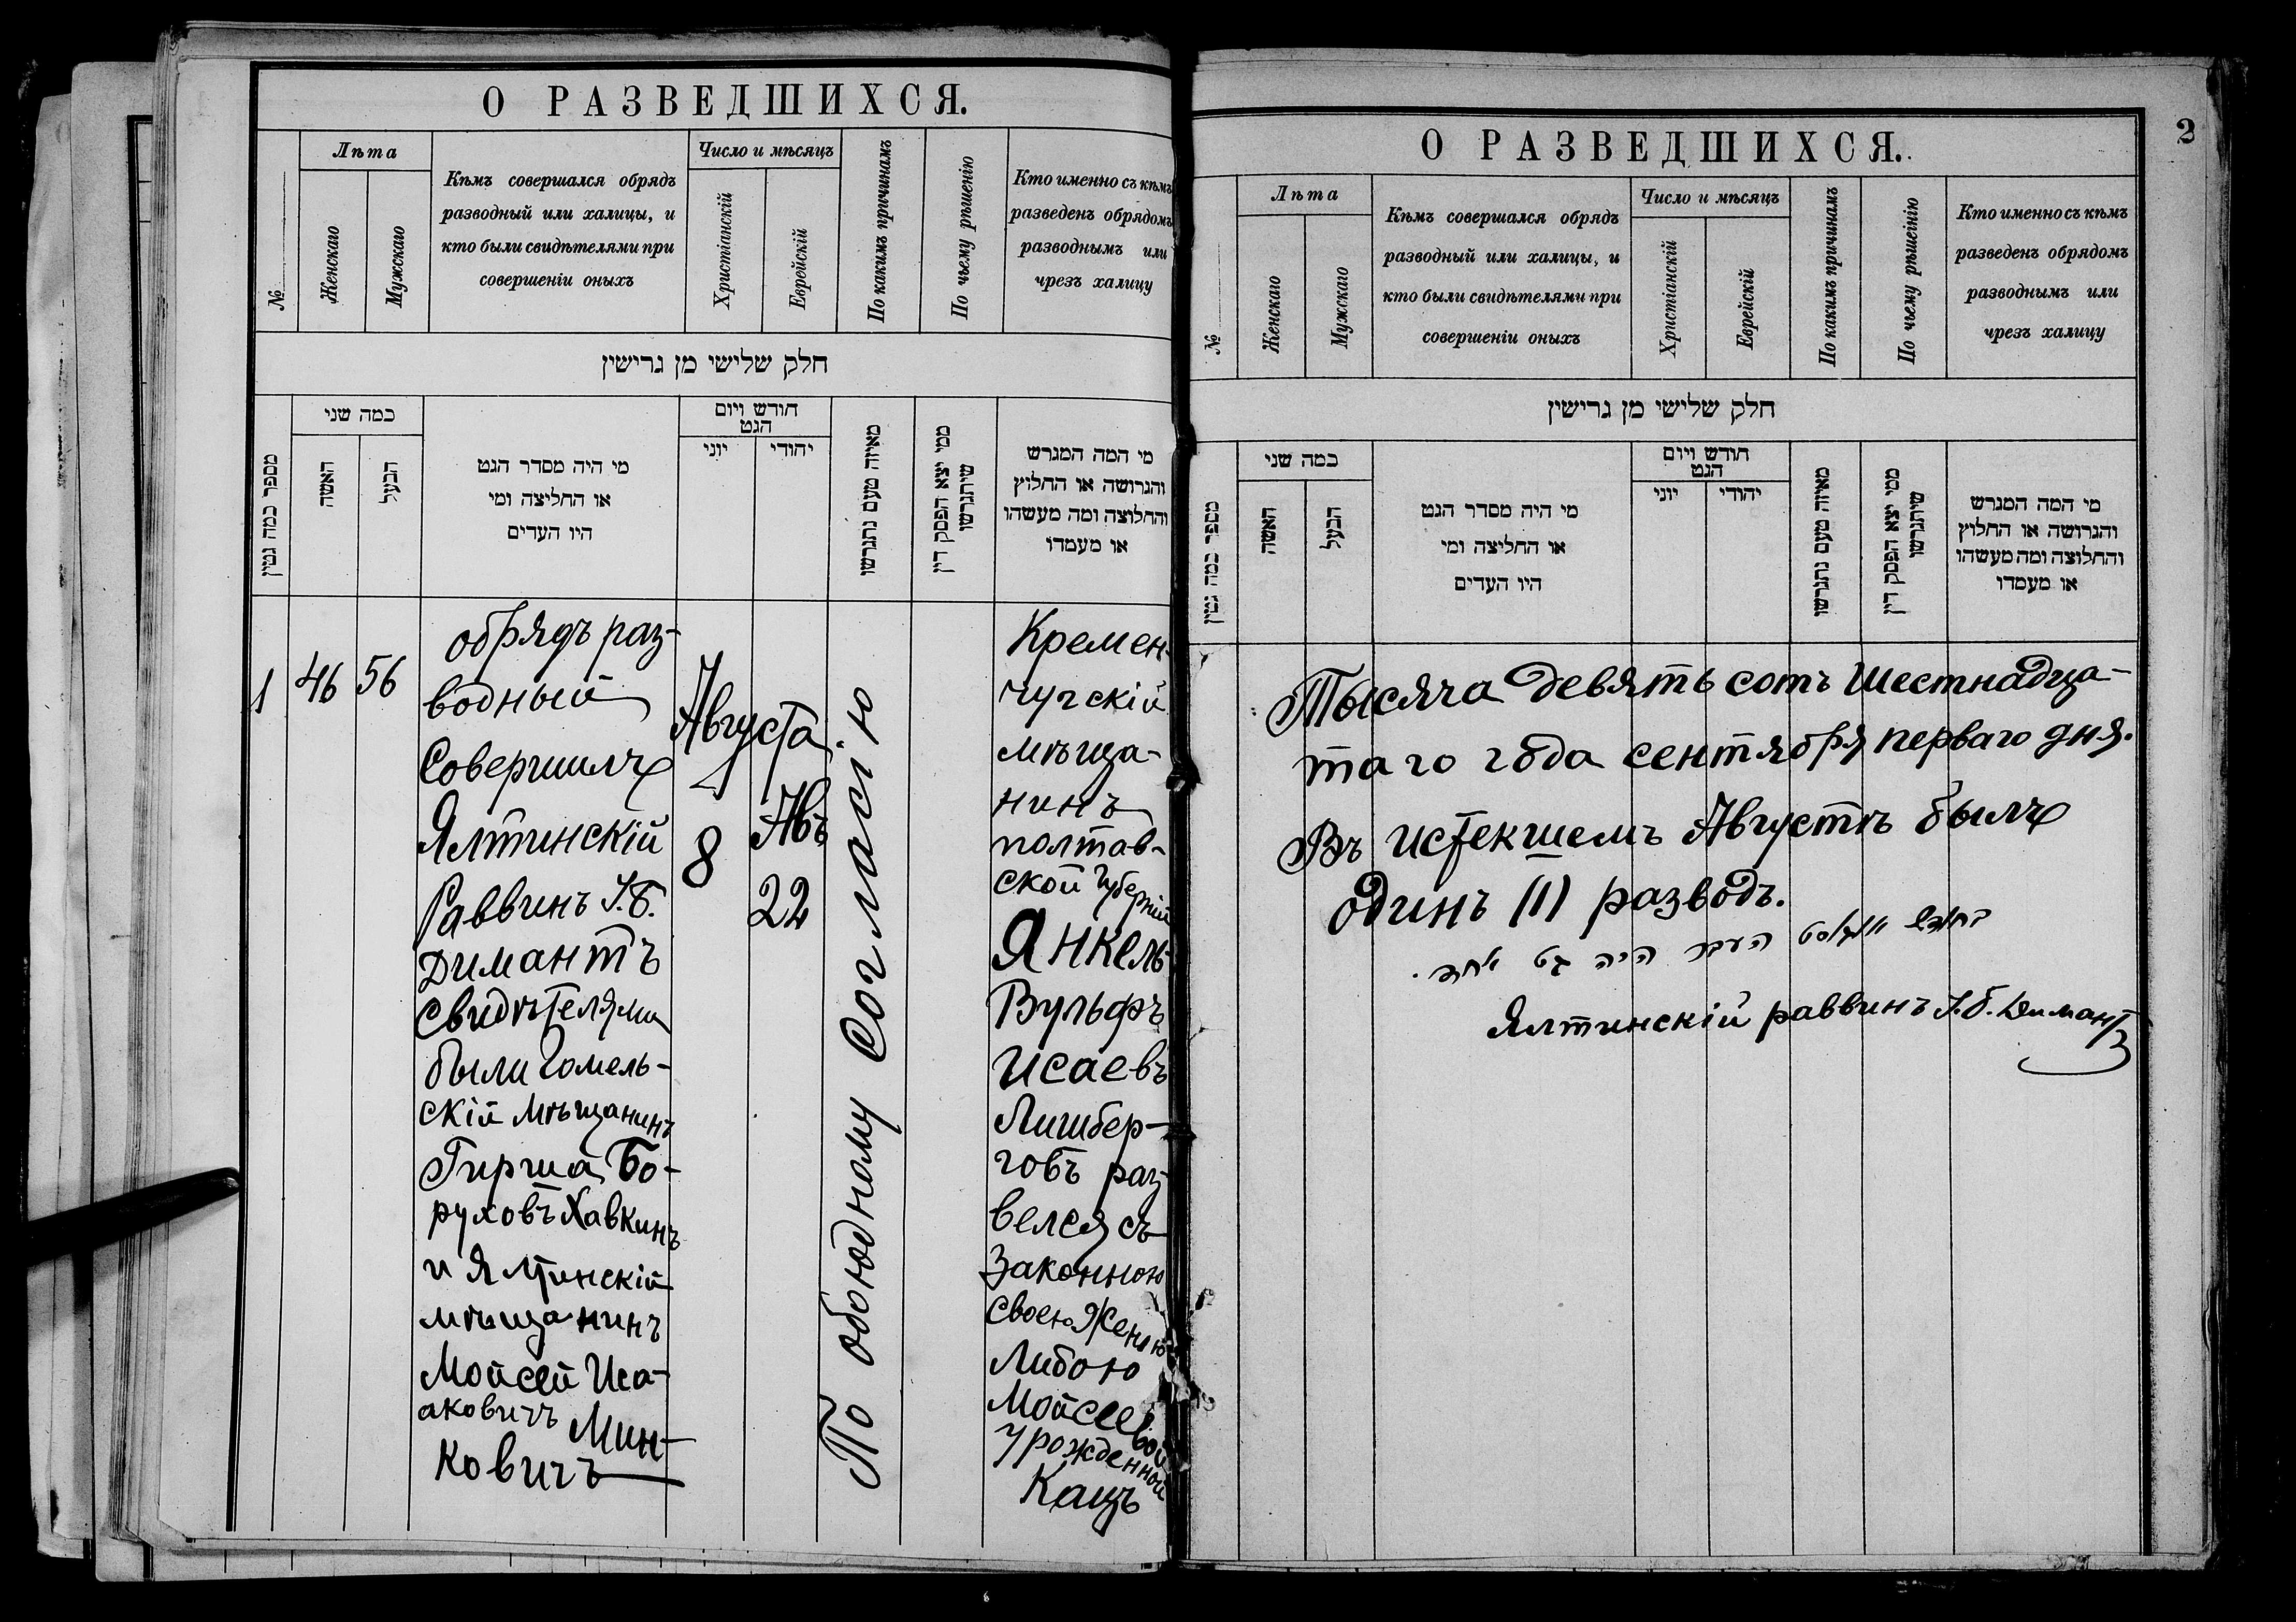 О РАЗВЕДШИХСЯ.
№
Лѣта
Женскаго
Мужскаго
Кѣмъ совершался обрядъ
разводный или халицы, и
кто были свидѣтелями при
совершеніи оныхъ
Число и мѣсяцъ
Христіанскій
Еврейскій
По какимъ причинамъ
По чьему рѣшенію
Кто именно съ кѣмъ
разведенъ обрядомъ
разводнымъ или
чрезъ халицу
חלק שלישי מן גרישין
מספר כמה גטין
כמה שני
האשה
הבעל
מי היה מסדר הגט
או החליצה ומי
היו העדים
חודש ויום
הגט
יוני
יהודי
מאיזה טעם נתגרשו
ממי יצא הפסק דין
שיתגרשו
מי המה המגרש
והגרושה או החלוץ
והחלוצה ומה מעשהו
או מעמדו
1
46
56
обрядъ раз-
водный
Совершилъ
Ялтинскій
Раввинъ І.Б.
Димантъ
Свидѣтелями
были Гомель-
скій мѣщанинъ
Гирша Бо-
руховъ Хавкинъ
и Ялтинскій
мѣщанинъ
Мойсей Иса-
аковичъ Мин-
ковичъ
Августа
8
Авъ
22
По обоюдному Согласію
Кремен-
чугскій
мѣща-
нинъ
полтав-
ской губерніи
Янкель
Вульфъ
Исаевъ
Лишбер-
говъ раз-
велся съ
Законною
своею Женою
Либою
Мойсеевой
урожденной
Кацъ
2
О РАЗВЕДШИХСЯ.
№
Лѣта
Женскаго
Мужскаго
Кѣмъ совершался обрядъ
разводный или халицы, и
кто были свидѣтелями при
совершеніи оныхъ
Число и мѣсяцъ
Христіанскій
Еврейскій
По какимъ причинамъ
По чьему рѣшенію
Кто именно съ кѣмъ
разведенъ обрядомъ
разводнымъ или
чрезъ халицу
חלק שלישי מן גרישין
מספר כמה גטין
כמה שני
האשה
הבעל
מי היה מסדר הגט
או החליצה ומי
היו העדים
חודש ויום
הגט
יוני
יהודי
מאיזה טעם נתגרשו
ממי יצא הפסק דין
שיתגרשו
מי המה המגרש
והגרושה או החלוץ
והחלוצה ומה מעשהו
או מעמדו
Тысяча девять сотъ шестнадца-
таго года сентября перваго дня.
Въ истекшемъ Августѣ былъ
одинъ (1) разводъ.
בחדש אויגוסט העבר היה גט אחד.
Ялтинскій раввинъ І.Б. Димантъ